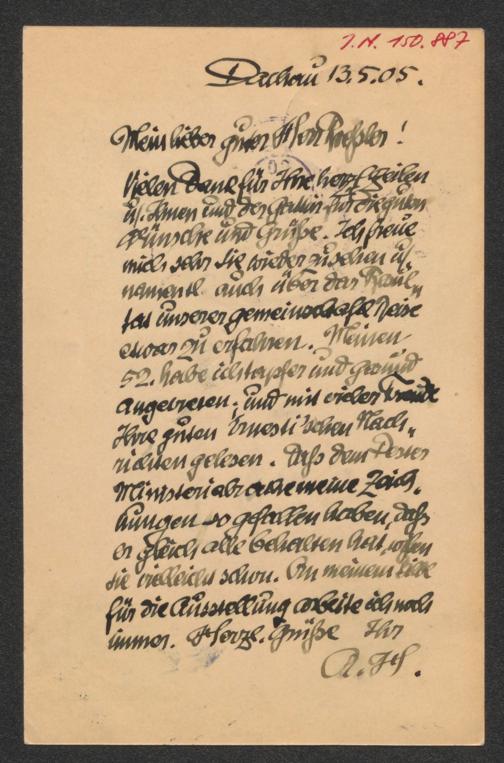 J.N. 150.887
Dachau 13.5.05.
Mein lieber guter Herr !
Vielen Dank für Ihre herzl. Zeilen
u. Ihnen und der Gattin für die guten
Wünsche und Grüße. Ich freue
mich sehr Sie wieder zu sehen u.
namentl. auch über das Resul„
tat unserer gemeinschaftl. Reise
etwas zu erfahren. Meinen
52. habe ich tapfer und gesund
angetreten; und mit vieler Freude
Ihre guten Ernesti'schen Nach„
richten gelesen. Daß dem
Ministerialr alle meine Zeich„
nungen so gefallen haben, daß
er gleich alle behalten hat, wissen
Sie vielleicht schon. An meinem
für die Ausstellung arbeite ich noch
immer. Herzl. Grüße Ihr
A. H.